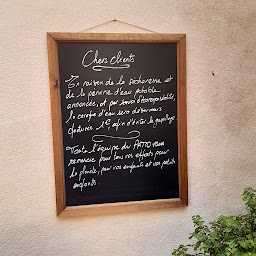 Chers clients
En raison de la sécheresse et
de la pénurie d'eau potable
annoncée, et par souci d'écoresponsabilité,
la carafe d'eau sera désormais
facturée 1€, afin d'éviter le gaspillage
Toute l'équipe du PATIO vous
remercie pour tous vos efforts pour
la planète, pour vos enfants et vos petits
enfants.